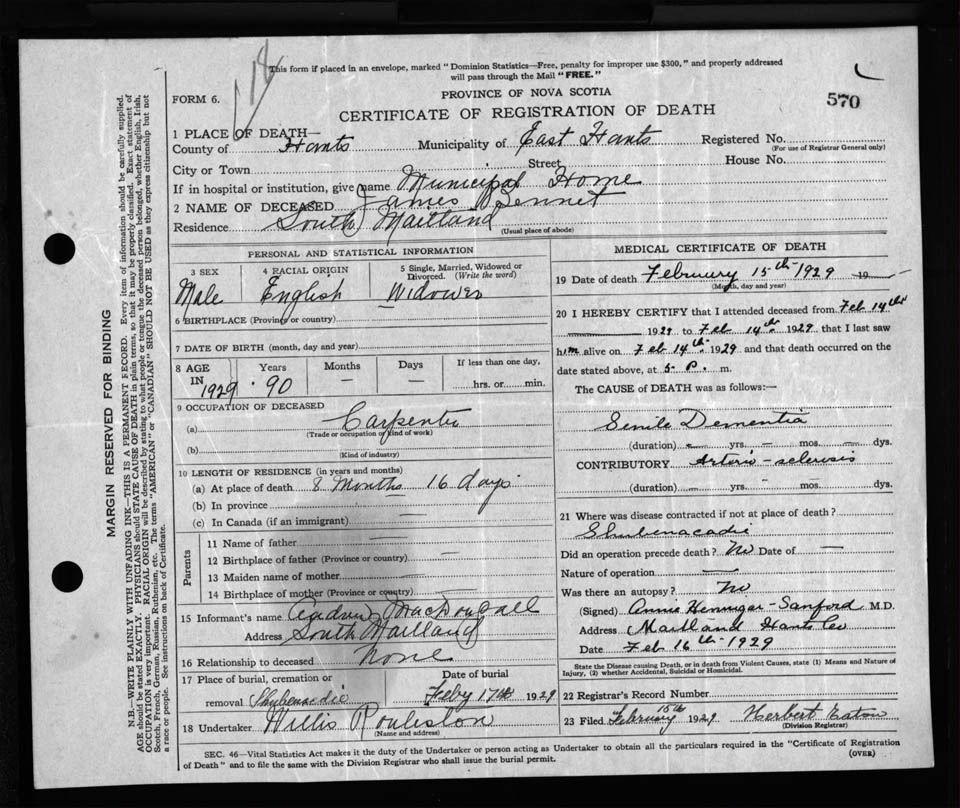 118
This form if placed in an envelope, marked "Dominion Statistics—Free, penalty for improper use $300," and properly addressed
will pass through the Mail "FREE."
FORM 6.
PROVINCE OF NOVA SCOTIA
570
CERTIFICATE OF REGISTRATION OF DEATH
1 PLACE OF DEATH—
County of Hants Municipality of East Hants Registered No.
(For use of Registrar General only)
City or Town Street House No.
If in hospital or institution, give name Municipal Home
2 NAME OF DECEASED James Bennet
Residence South Maitland
(Usual place of abode)
PERSONAL AND STATISTICAL INFORMATION
3 SEX 4 RACIAL ORIGIN 5 Single, Married, Widowed or
Divorced. (Write the word)
Male English Widower
6 BIRTHPLACE (Province or country)
7 DATE OF BIRTH (month, day and year)
8 AGE IN 1929 Years Months Days If less than one day,
90 — — hrs. or min.
9 OCCUPATION OF DECEASED
(a) Carpenter
(Trade or occupation or kind of work)
(b)
(Kind of industry)
10 LENGTH OF RESIDENCE (in years and months)
(a) At place of death 8 months 16 days
(b) In province —
(c) In Canada (if an immigrant) —
Parents
11 Name of father —
12 Birthplace of father (Province or country) —
13 Maiden name of mother —
14 Birthplace of mother (Province or country)
15 Informant's name MacDougall
Address South Maitland
16 Relationship to deceased None
17 Place of burial, cremation or Date of burial
removal Shubenacadie Feby 17th 1929
18 Undertaker Willis
(Name and address)
MEDICAL CERTIFICATE OF DEATH
19 Date of death February 15th 1929 19
(Month, day and year)
20 I HEREBY CERTIFY that I attended deceased from Feb 14th
1929 to Feb 14th 1929 that I last saw
him alive on Feb 14th 1929 and that death occurred on the
date stated above, at 5 P. m.
The CAUSE of DEATH was as follows:—
Senile Dementia
(duration) — yrs. — mos. — dys.
CONTRIBUTORY Arterio-sclerosis
(duration) — yrs. — mos. — dys.
21 Where was disease contracted if not at place of death?
Shubenacadie
Did an operation precede death? No Date of —
Nature of operation —
Was there an autopsy? No
(Signed) Annie Hennigar-Sanford M.D.
Address Maitland Hants Co
Date Feb 16th 1929
State the Disease causing Death, or in death from Violent Causes, state (1) Means and Nature of
Injury, (2) whether Accidental, Suicidal or Homicidal.
22 Registrar's Record Number
23 Filed February 1929 Herbert Eaton
(Division Registrar)
SEC. 46—Vital Statistics Act makes it the duty of the Undertaker or person acting as Undertaker to obtain all the particulars required in the "Certificate of Registration
of Death" and to file the same with the Division Registrar who shall issue the burial permit.
(OVER)
MARGIN RESERVED FOR BINDING
N.B.—WRITE PLAINLY WITH UNFADING INK—THIS IS A PERMANENT RECORD. Every item of information should be carefully supplied.
AGE should be stated EXACTLY. PHYSICIANS should STATE CAUSE OF DEATH in plain terms, so that it may be properly classified. Exact statement of
OCCUPATION is very important. RACIAL ORIGIN will be described by stating to what people or tongue the deceased person belonged, whether English, Irish,
Scotch, French, German, Russian, Ruthenian, etc. The terms "AMERICAN" or "CANADIAN" SHOULD NOT BE USED as they express citizenship but not
a race or people. See instructions on back of Certificate.